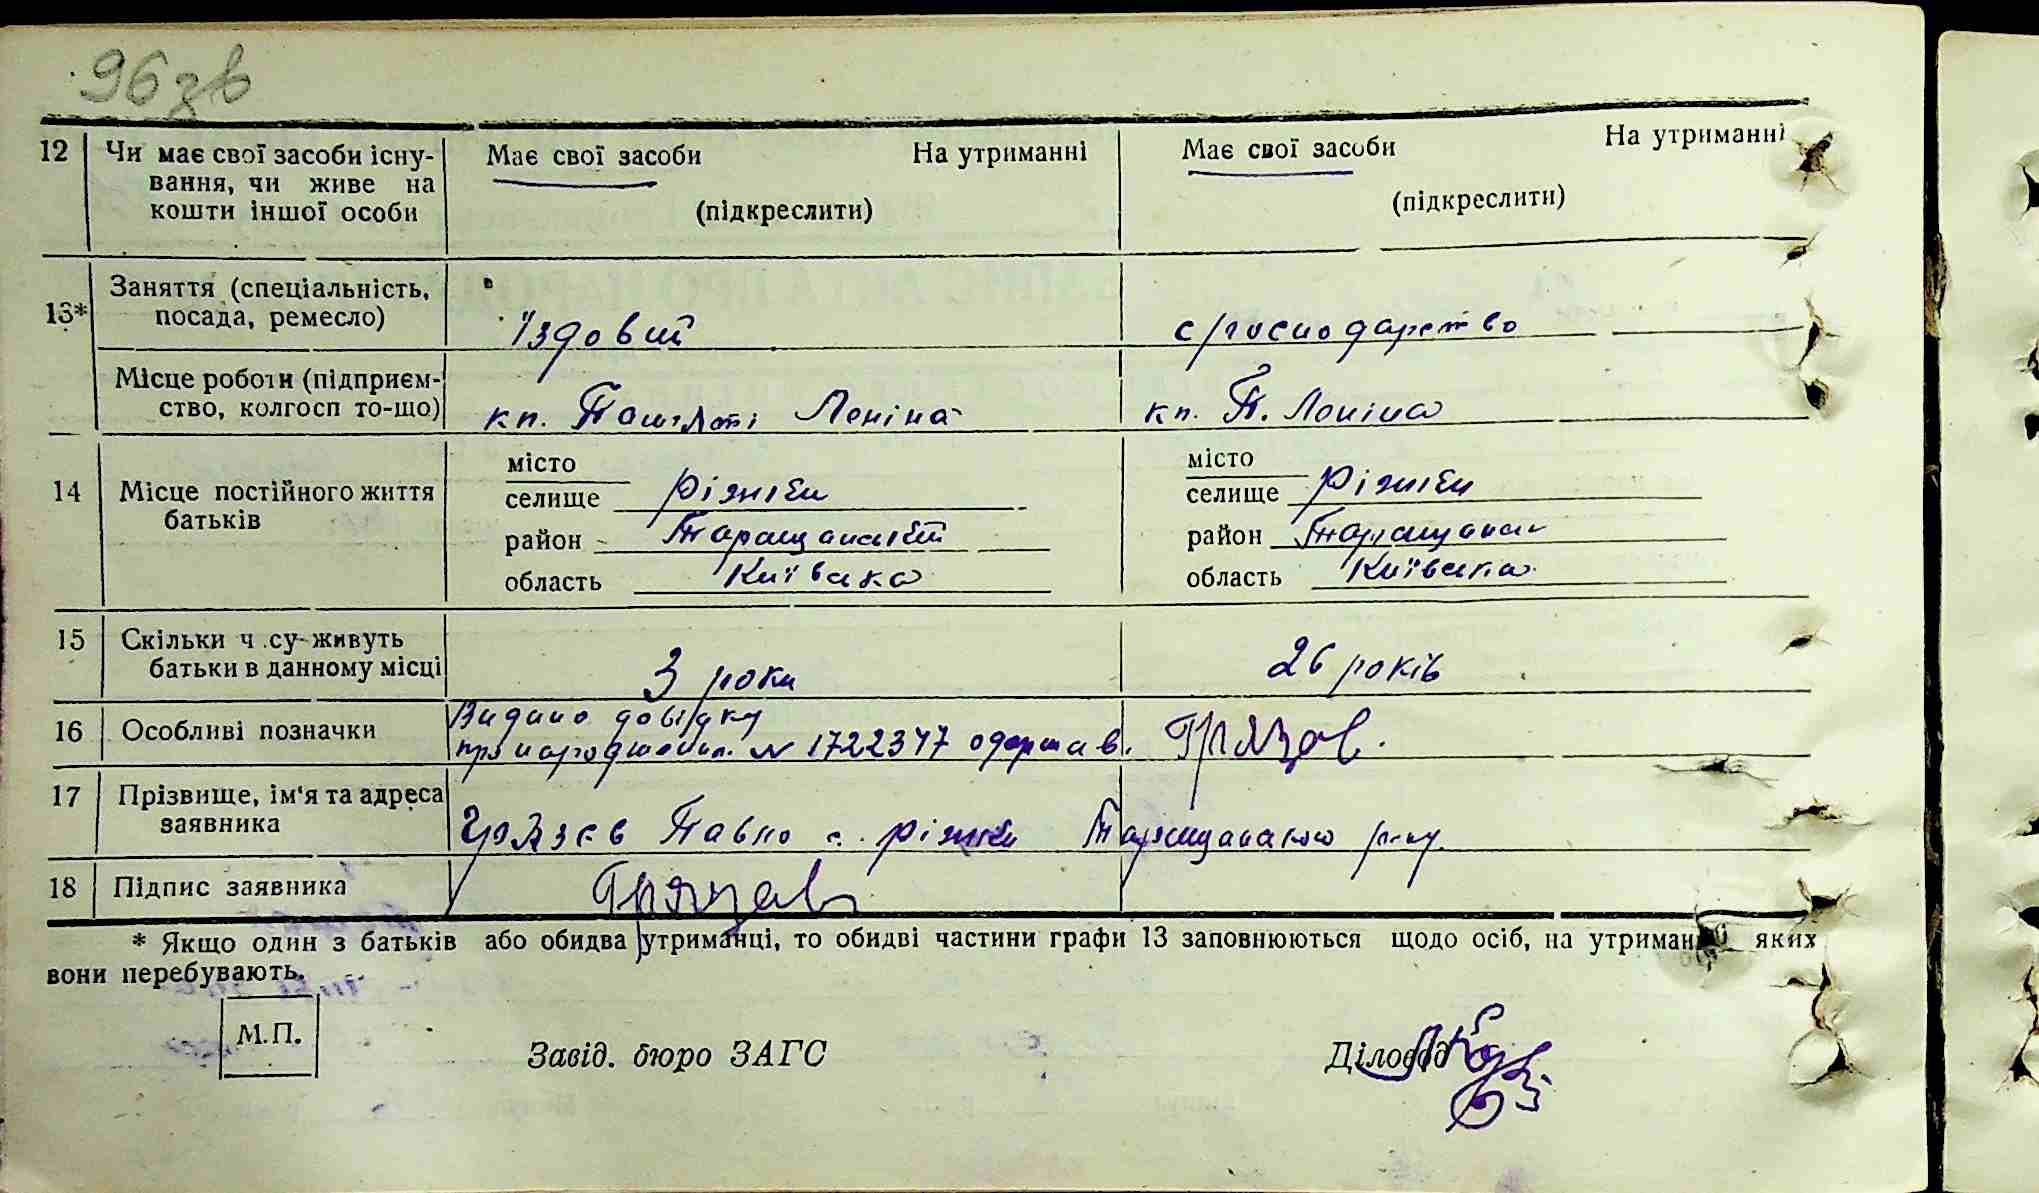 96 зв
12 Чи має свої засоби існу- Має свої засоби На утриманні Має свої засоби На утриманні
вання, чи живе на
кошти іншої особи (підкреслити) (підкреслити)
13* Заняття (спеціальність,
посада, ремесло) Їздовий с/господарство
Місце роботи (підприєм-
ство, колгосп то-що) кп. Памʼяті Леніна кп. П. Леніна
місто місто
14 Місце постійного життя селище Ріжки селище Ріжки
батьків район Таращанський район Таращанськ
область Київська область Київська
15 Скільки ч су живуть
батьки в данному місці 3 роки 26 років
16 Особливі позначки Видано довідку
про народження N 1722347 одержав. Грязєв.
17 Прізвище, ім'я та адреса
заявника Грязєв Павло с. Ріжки Таращанського р-ну
18 Підпис заявника Грязєв
* Якщо один з батьків або обидва утриманці, то обидві частини графи 13 заповнюються щодо осіб, на утриманні яких
вони перебувають.
М.П. Завід. бюро ЗАГС Діловод